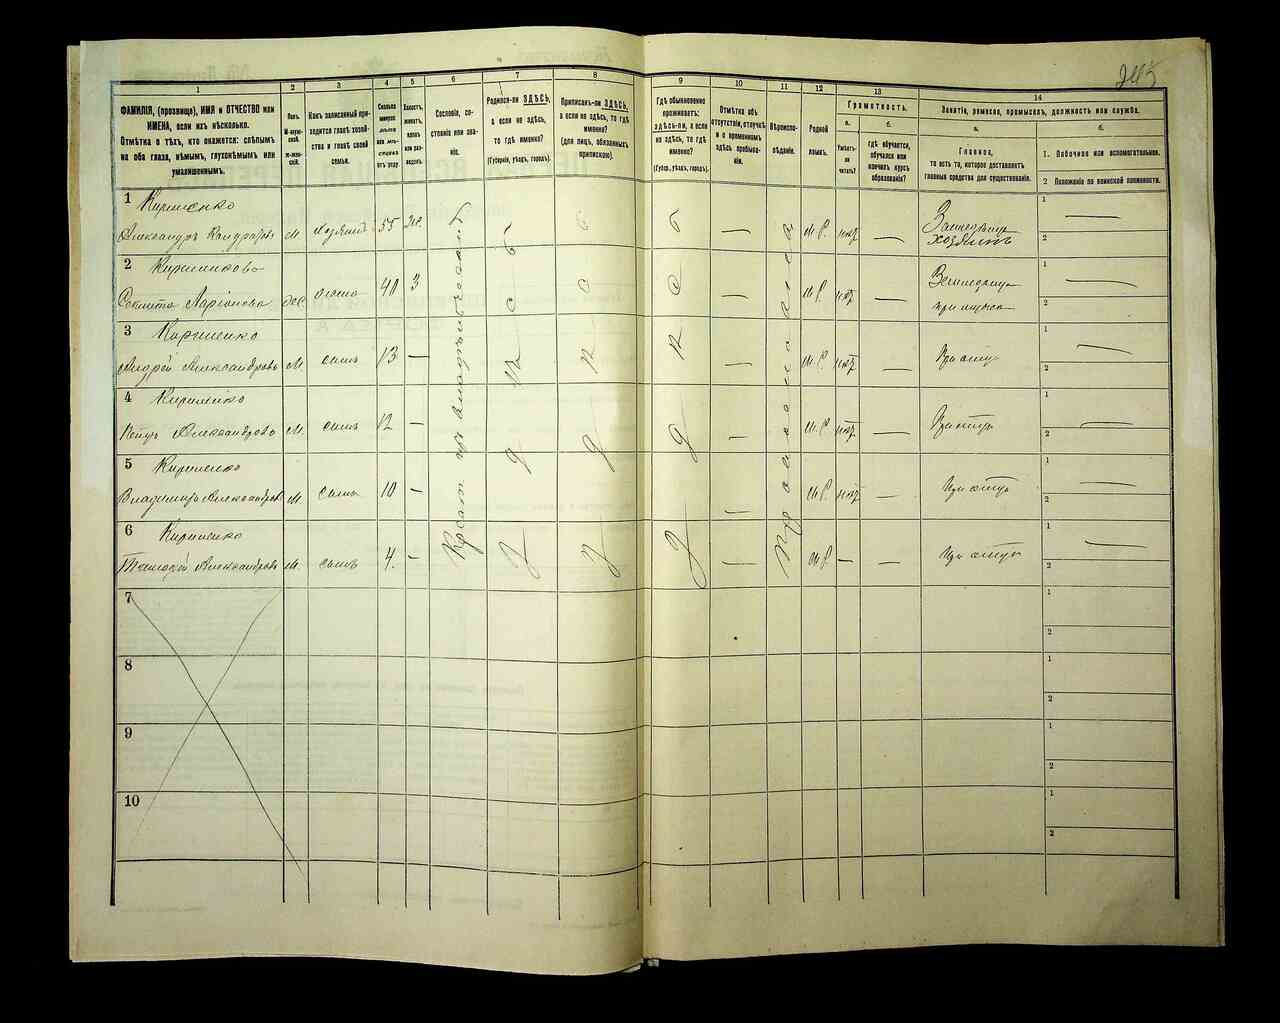 245
1
2
3
4
5
6
7
8
9
10
11
12
13
14
ФАМИЛІЯ, (прозвище), ИМЯ и ОТЧЕСТВО или
ИМЕНА, если ихъ нѣсколько.
Отмѣтка о тѣхъ, кто окажется: слѣпымъ
на оба глаза, нѣмымъ, глухонѣмымъ или
умалишеннымъ.
Полъ.
М-муж-
ской.
ж-жен-
скій.
Какъ записанный при-
ходится главѣ хозяй-
ства и главѣ своей
семьи.
Сколько
минуло
лѣтъ
или мѣ-
сяцевъ
отъ роду.
Холостъ,
женатъ,
вдовъ
или раз-
веденъ.
Сословіе, со-
стояніе или зва-
ніе.
Родился-ли ЗДѢСЬ,
а если не здѣсь,
то гдѣ именно?
(Губернія, уѣздъ, городъ).
Приписанъ-ли ЗДѢСЬ,
а если не здѣсь, то гдѣ
именно?
(для лицъ, обязанныхъ
припискою).
Гдѣ обыкновенно
проживаетъ:
здѣсь-ли, а если
не здѣсь, то гдѣ
именно?
(Губер., уѣздъ, городъ).
Отмѣтка объ
отсутствіи, отлучкѣ
и о временномъ
здѣсь пребыва-
ніи.
Вѣроиспо-
вѣданіе.
Родной
языкъ.
Грамотность.
а.
Умѣетъ-
ли
читать?
б.
гдѣ обучается,
обучался или
кончилъ курсъ
образованія?
Занятіе, ремесло, промыселъ, должность или служба.
а.
Главное,
то есть то, которое доставляетъ
главныя средства для существованія.
б.
1. Побочное или вспомогательное.
2 Положеніе по воинской повинности.
1 Кириленко
Александръ Кондратовъ М. хозяинъ 55 же. М.Р. нѣт — Земледѣлие хозяинъ
2
жена 40 3 — М.Р. нѣт —
3 Кириленко
Андрей Александровъ М. сынъ 13 — — М.Р. нѣт — При отцѣ
4 Кириленко
Петръ Александровъ М. сынъ 12 — — М.Р. нѣт — При отцѣ
5 Кириленко
Владимиръ Александровъ М. сынъ 10 — — М.Р. нѣт — При отцѣ
6 Кириленко
Тимофей Александровъ М. сынъ 4. — — М.Р. — — При отцѣ
Здѣсь
Здѣсь
Здѣсь
Православная
7
8
9
10